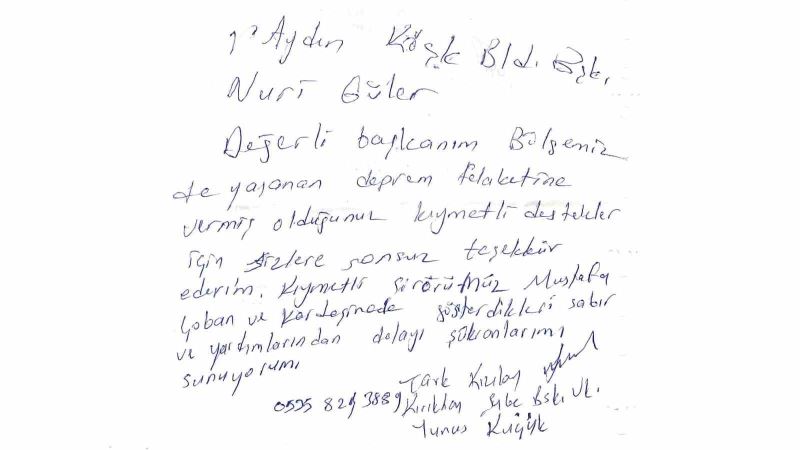 Aydın Köşk Bld. Bşk.
Nuri Güler
Değerli başkanım Bölgemiz
de yaşanan deprem felaketine
vermiş olduğunuz kıymetli destekler
için sizlere sonsuz teşekkür
ederim. Kıymetli Mustafa
Çoban ve Kardeşinede gösterdikleri sabır
ve yardımlarından dolayı şükranlarımı
sunuyorum
Türk Kızılay
Kırıkhan Şube Bşk. Vk.
Yunus Küçük